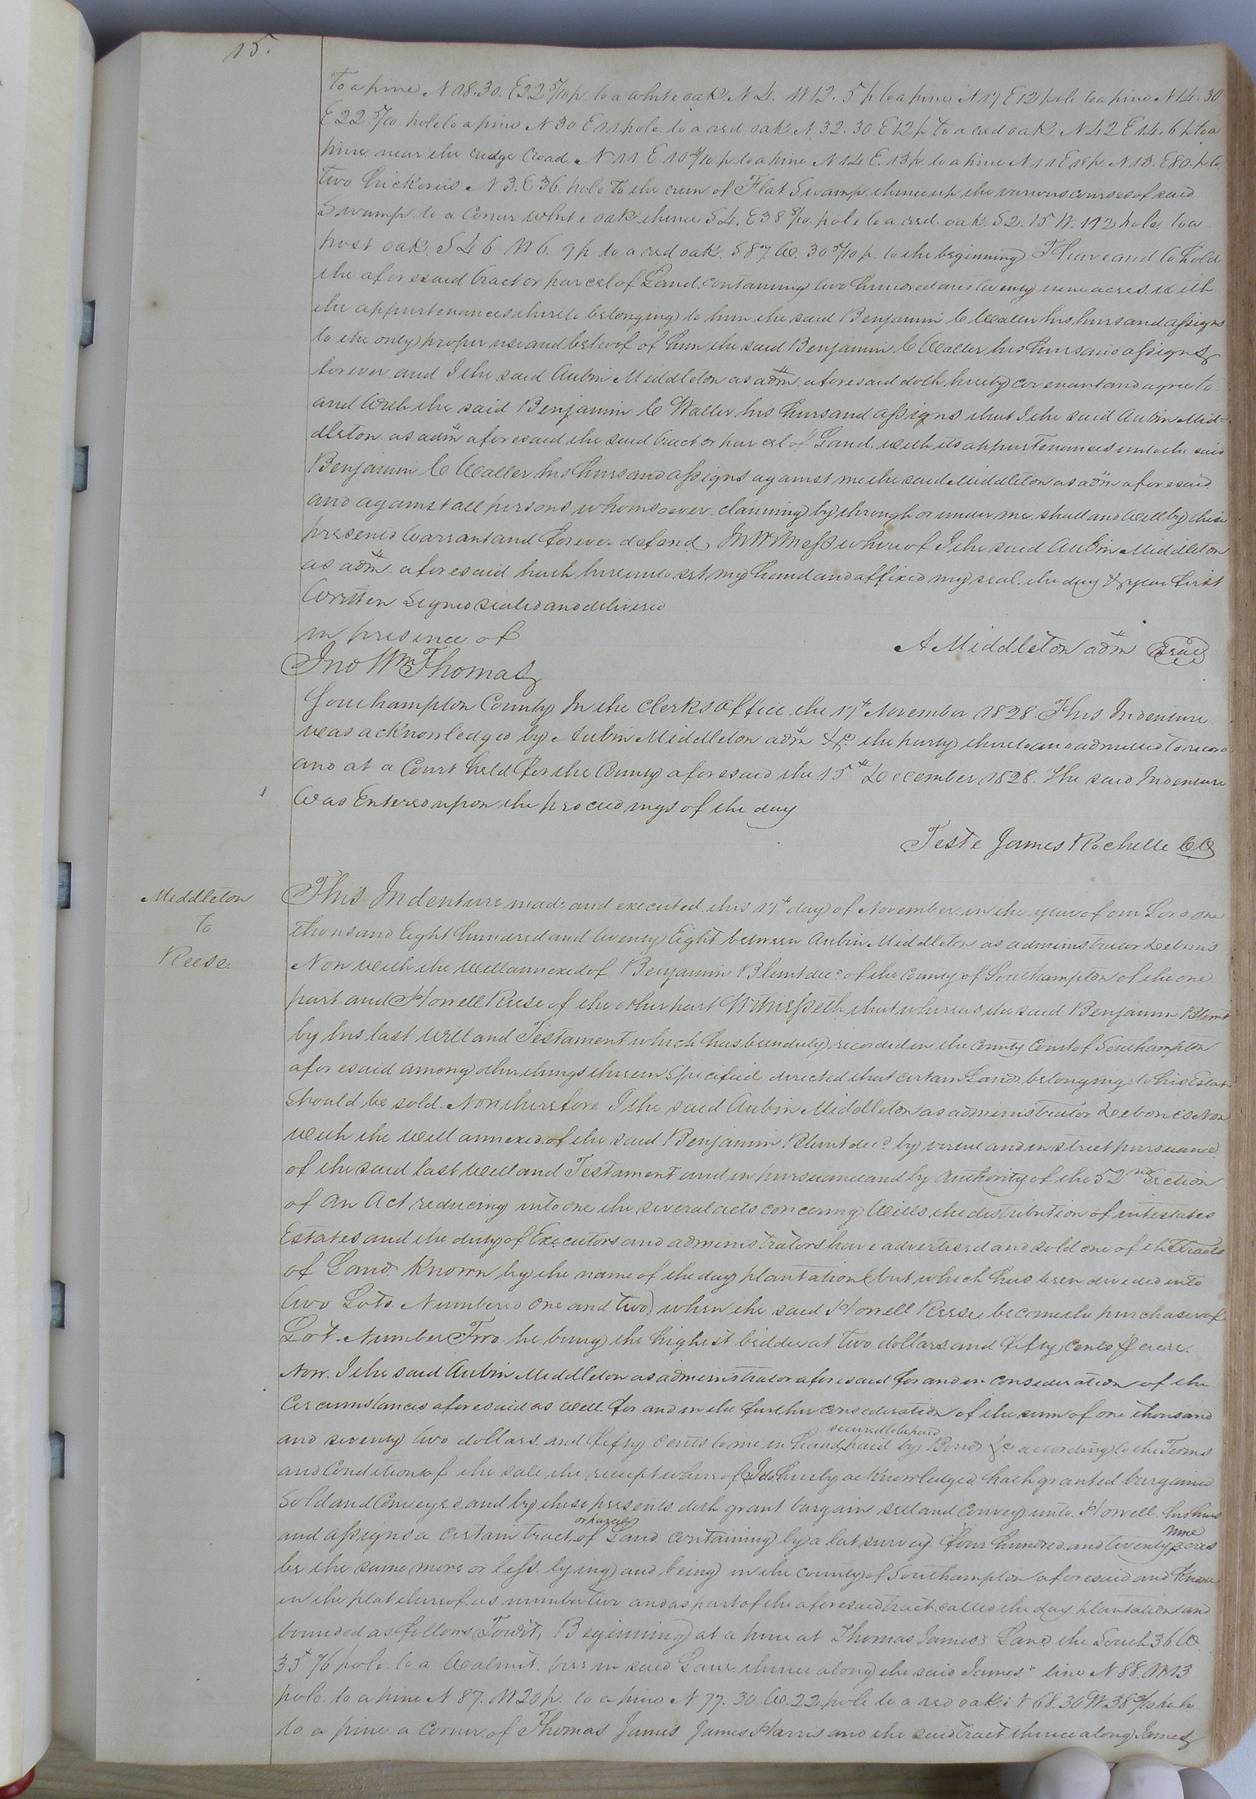 15.
to a pine N 18.30. E 22 5/10 p. to a white oak N 4. W 12. 5 p to a pine N 17 E 12 pole to a pine N 14. 30
E 22. 5/10. pole to a pine N 30 E 11 pole to a red oak N. 32. 30. E 12 p to a red oak N 42 E 14. 6 p to a
pine near the ridge road N 11 E 10 4/10 p to a pine N 14 E. 13 p. to a pine N 11 E 18 p. N 13. E 80. p to
two hickories N 3. E 36. pole to the run of Flat Swamp thence up the various courses of said
Swamp to a corner white oak thence S 4. E 38 5/10. pole to a red oak. S 2. 15 W. 192 poles to a
post oak. S 46 W 6. 9 p to a red oak. S 87 W. 30 5/10 p. to the beginning To have and to hold
the aforesaid tract or parcel of Land containing two hundred and twenty nine acres with
the appurtenances thereto belonging to him the said Benjamin C Waller his heirs and assigns
to the only proper use and behoof of him the said Benjamin C Waller his heirs and assigns
forever and I the said Aubin Middleton as adm aforesaid doth hereby covenant and agree to
and with the said Benjamin C Waller his heirs and assigns that I the said Aubin Mid-
dleton as adm aforesaid the said tract or parcel of Land with its appurtenances unto the said
Benjamin C Waller his heirs and assigns against me the said Middleton as adm aforesaid
and against all persons whomsoever claiming by through or under me shall and will by these
presents warrant and forever defend In Witness whereof I the said Aubin Middleton
as adm aforesaid hath hereunto set my hand and affixed my seal the day & year first
written Signed sealed and delivered
in presence of
A Middleton adm Seal
Jno Wm Thomas
Southampton County In the Clerks office the 17th November 1828 This Indenture
was acknowledged by Aubin Middleton adm &c. the party thereto and admitted to record
and at a Court held for the County aforesaid the 15th December 1828. The said Indenture
was Entered upon the proceedings of the day
Teste James Rochelle CC
Middleton
to
Reese
This Indenture made and executed this 17th day of November in the year of our Lord one
thousand Eight hundred and twenty Eight between Aubin Middleton as administrator Debonis
Non with the will annexed of Benjamin Blunt decd of the County of Southampton of the one
part and Howell Reese of the other part Witnesseth that whereas the said Benjamin Blunt
by his last will and Testament which has been duly recorded in the County Court of Southampton
aforesaid among other things therein specified directed that certain Lands belonging to his Estate
should be sold. Now therefore I the said Aubin Middleton as administrator Debonis Non
with the will annexed of the said Benjamin Blunt decd by virtue and in strict pursuance
of the said last will and Testament and in pursuance and by Authority of the 52nd Section
of an Act reducing into one the several acts concerning Wills the distribution of intestates
Estates and the duty of Executors and administrators have advertised and sold one of the tracts
of Land known by the name of the day plantation (but which has been divided into
two Lots Numbered one and two) when the said Howell Reese become the purchaser of
Lot Number Two he being the highest bidder at two dollars and fifty cents p acre.
Now I the said Aubin Middleton as administrator aforesaid for and in consideration of the
Circumstances aforesaid as well for and in the further consideration of the sum of one thousand
secured to be paid
and seventy two dollars and fifty cents to me in hand paid by Bond &c according to the Terms
and Condition of the sale the receipt whereof I do hereby acknowledged hath granted bargained
sold and Conveyed and by these presents doth grant bargain sell and convey unto Howell his heirs
or parcel
nine
and assigns a certain tract of Land containing by a lat survey four hundred and twenty acres
be the same more or less lying and being in the county of Southampton aforesaid and known
in the plat thereof as number two and as part of the aforesaid tract called the day plantation and
bounded as follows Towit, Beginning at a pine at Thomas James's Land the South 36 W
35 7/6 pole. to a Walnut tree in said Lane thence along the said James' line N 88. W 13
pole. to a pine N 87. W 20 p. to a pine N 77. 30 W. 22 pole to a red oak N 68. 30 W. 38 9/10 pole
to a pine a corner of Thomas James James Harris and the said tract thence along James